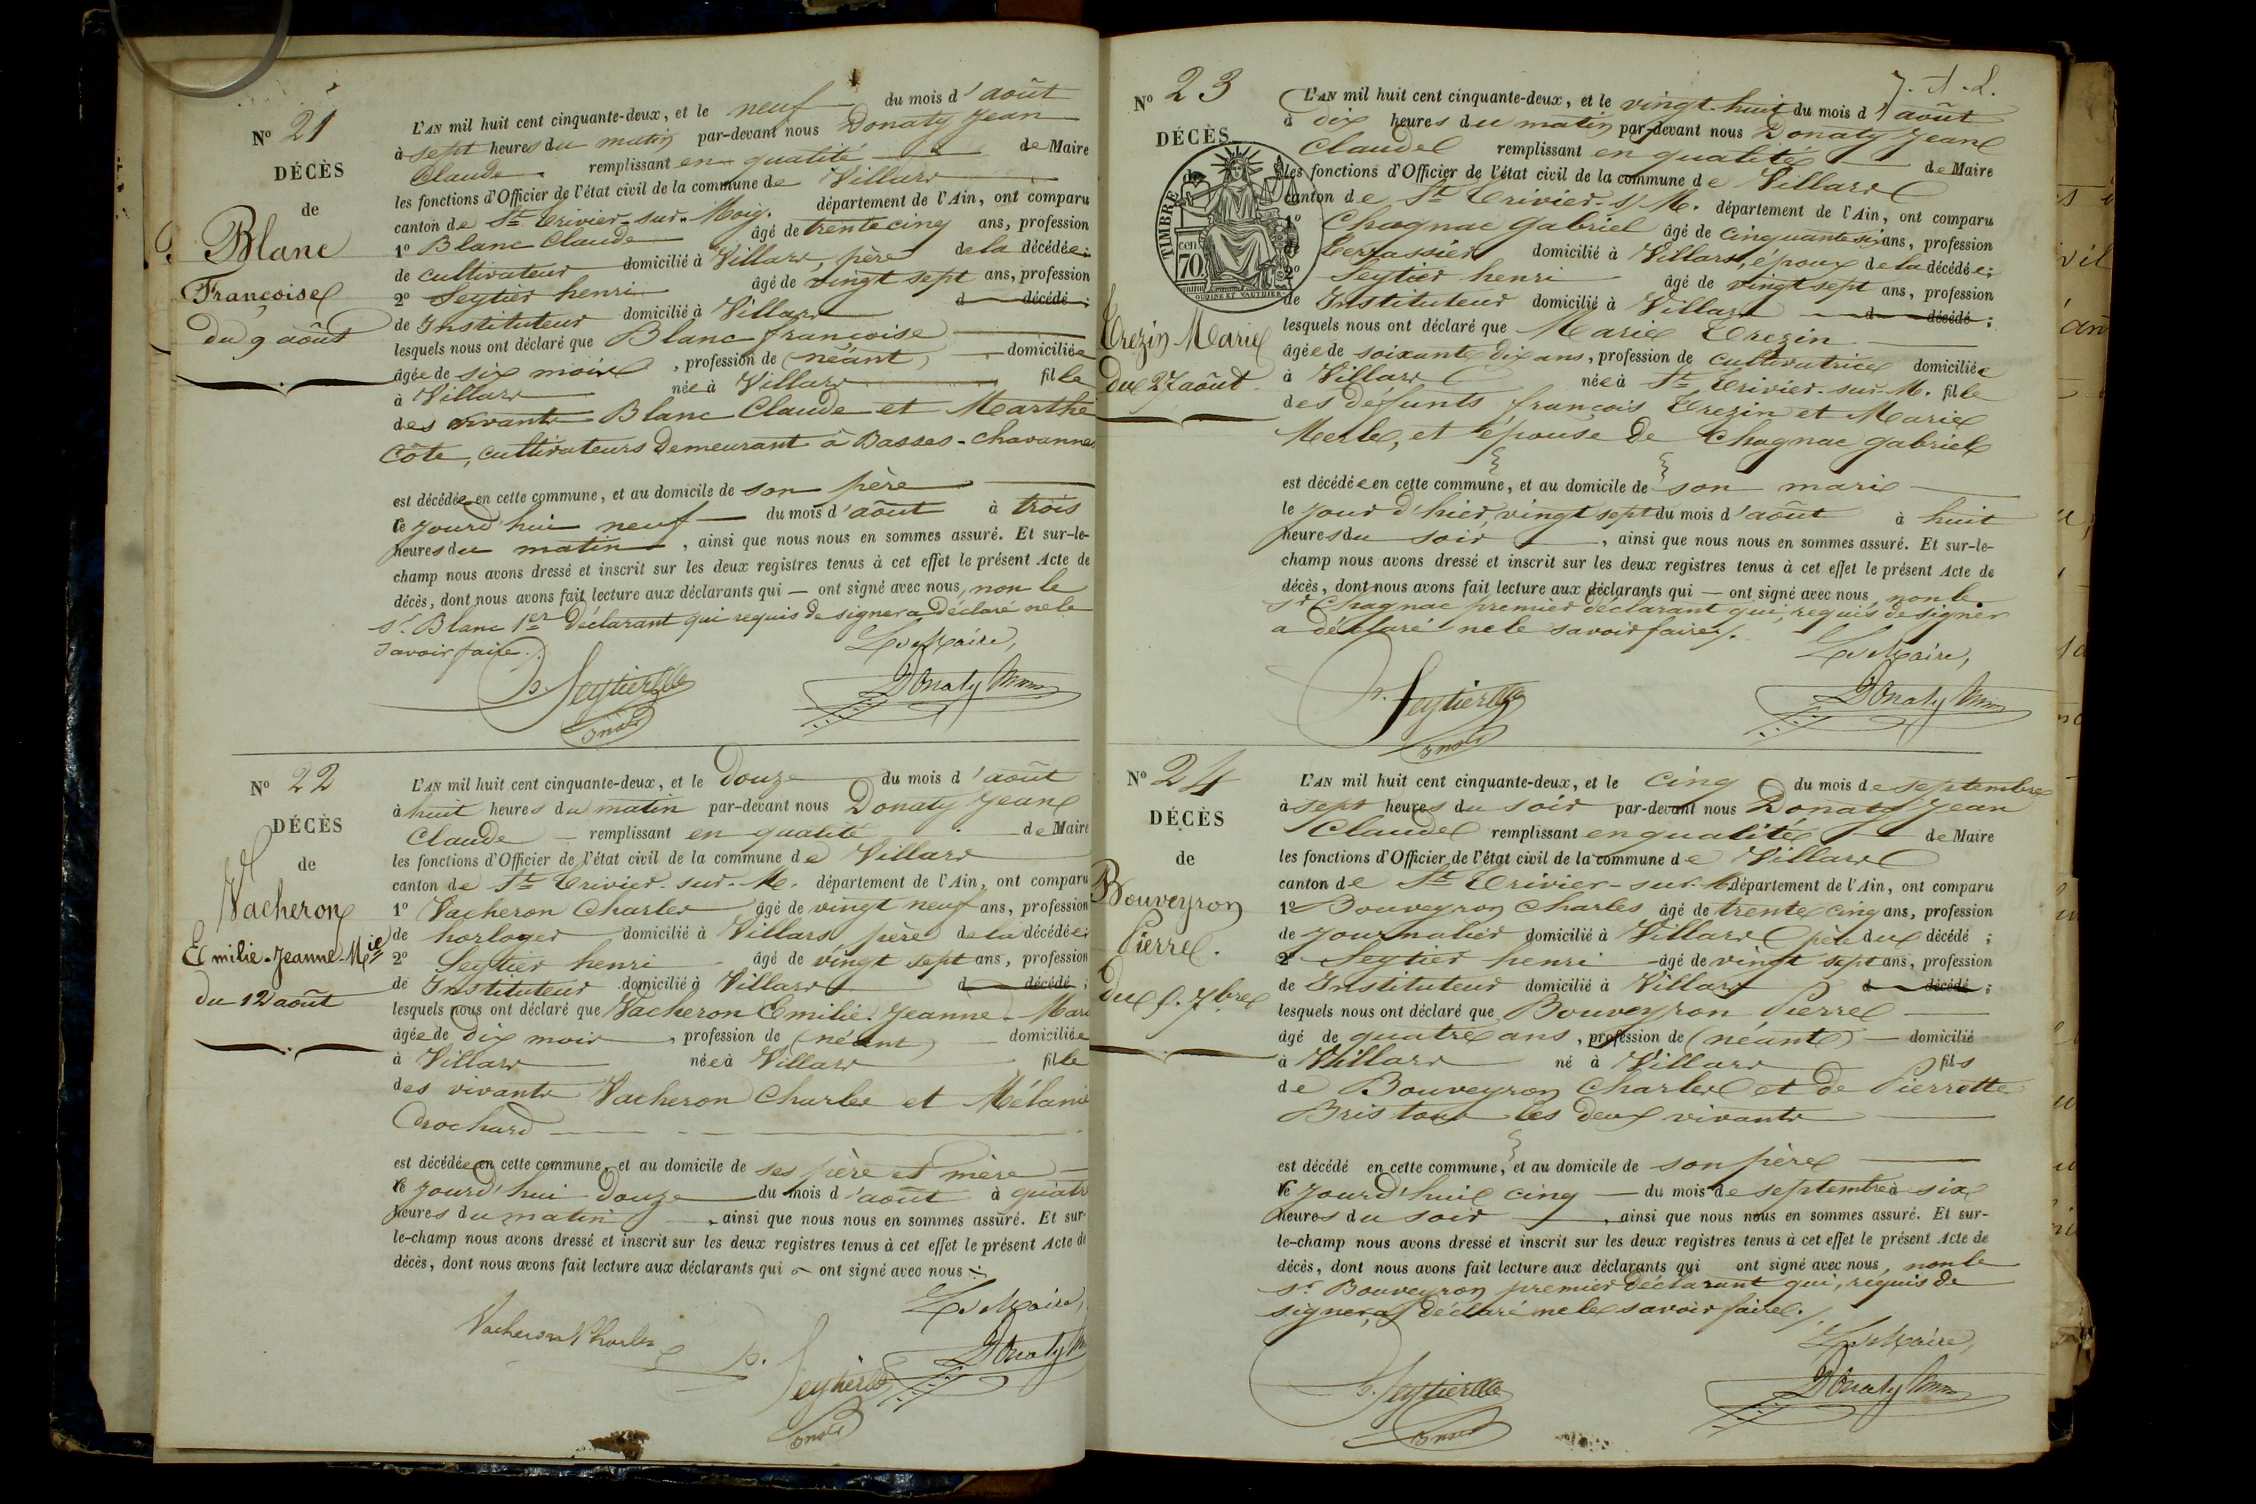 N° 21
DÉCÈS
de
Blanc
Françoise
du 9 août
L'AN mil huit cent cinquante-deux, et le neuf du mois d'août
à sept heures du matin par-devant nous Donaty Jean
Claude remplissant en qualité de Maire
les fonctions d'Officier de l'état civil de la commune de Villars
canton de St Trivier-sur-Moig. département de l'Ain, ont comparu
1° Blanc Claude âgé de trente cinq ans, profession
de cultivateur domicilié à Villars, père de la décédée;
2° Seytier henri âgé de vingt sept ans, profession
de Instituteur domicilié à Villars d décédé;
lesquels nous ont déclaré que Blanc françoise
âgée de six mois, profession de (néant) domiciliée
à Villars née à Villars fille
des vivants Blanc Claude et Marthe
Côte, cultivateurs demeurant à Basses-Chavannes
est décédée en cette commune, et au domicile de son père
ce jourd'hui neuf du mois d'août à trois
heures du matin, ainsi que nous nous en sommes assuré. Et sur-le-
champ nous avons dressé et inscrit sur les deux registres tenus à cet effet le présent Acte de
décès, dont nous avons fait lecture aux déclarants qui — ont signé avec nous, non le
sr. Blanc 1er déclarant qui requis de signer a déclaré ne le
savoir faire.
Le Maire,
h. Seytier
Donaty
N° 22
DÉCÈS
de
Vacheron
Emilie-Jeanne-Mie
du 12 août
L'AN mil huit cent cinquante-deux, et le douze du mois d'août
à huit heures du matin par-devant nous Donaty Jean
Claude remplissant en qualité de Maire
les fonctions d'Officier de l'état civil de la commune de Villars
canton de St Trivier-sur-M. département de l'Ain, ont comparu
1° Vacheron Charles âgé de vingt neuf ans, profession
de horloger domicilié à Villars père de la décédée;
2° Seytier henri âgé de vingt sept ans, profession
de Instituteur domicilié à Villars d décédé;
lesquels nous ont déclaré que Vacheron Emilie-Jeanne-Mari
âgée de dix mois, profession de (néant) domiciliée
à Villars née à Villars fille
des vivants Vacheron Charles et Mélanie
Crochard
est décédée en cette commune, et au domicile de ses père et mère
ce jourd'hui douze du mois d'août à quatr
heures du matin, ainsi que nous nous en sommes assuré. Et sur-
le-champ nous avons dressé et inscrit sur les deux registres tenus à cet effet le présent Acte de
décès, dont nous avons fait lecture aux déclarants qui ont signé avec nous.
Le Maire,
Vacheron Charles
h. Seytier
Donaty
J. A. L.
N° 23
DÉCÈS
de
TIMBRE
cen 70
OUDINE ET VAUTHIER
Trezin Marie
du 27 août
L'AN mil huit cent cinquante-deux, et le vingt-huit du mois d'août
à dix heures du matin par-devant nous Donaty Jean
Claude remplissant en qualité de Maire
les fonctions d'Officier de l'état civil de la commune de Villars
canton de St Trivier-s/M. département de l'Ain, ont comparu
1° Chagnac gabriel âgé de cinquante six ans, profession
de Terrassier domicilié à Villars, époux de la décédée;
2° Seytier henri âgé de vingt sept ans, profession
de Instituteur domicilié à Villars d décédé;
lesquels nous ont déclaré que Marie Trezin
âgée de soixante dix ans, profession de cultivatrice domiciliée
à Villars née à St Trivier-sur-M. fille
des défunts françois Trezin et Marie
Merle, et épouse de Chagnac gabriel
est décédée en cette commune, et au domicile de son mari
le jour d'hier, vingt sept du mois d'août à huit
heures du soir, ainsi que nous nous en sommes assuré. Et sur-le-
champ nous avons dressé et inscrit sur les deux registres tenus à cet effet le présent Acte de
décès, dont nous avons fait lecture aux déclarants qui — ont signé avec nous, non le
sr Chagnac premier déclarant qui, requis de signer
a déclaré ne le savoir faire.
Le Maire,
h. Seytier
Donaty
N° 24
DÉCÈS
de
Bouveyron
Pierre.
du 5. 7bre
L'AN mil huit cent cinquante-deux, et le cinq du mois de septembre
à sept heures du soir par-devant nous Donaty Jean
Claude remplissant en qualité de Maire
les fonctions d'Officier de l'état civil de la commune de Villars
canton de St Trivier-sur-M. département de l'Ain, ont comparu
1° Bouveyron Charles âgé de trente cinq ans, profession
de journalier domicilié à Villars père du décédé;
2° Seytier henri âgé de vingt sept ans, profession
de Instituteur domicilié à Villars d décédé;
lesquels nous ont déclaré que Bouveyron Pierre
âgé de quatre ans, profession de (néant) — domicilié
à Villars né à Villars fils
de Bouveyron Charles et de Pierrette
Bris tous les deux vivants
est décédé en cette commune, et au domicile de son père
ce jourd'hui cinq du mois de septembre à six
heures du soir, ainsi que nous nous en sommes assuré. Et sur-
le-champ nous avons dressé et inscrit sur les deux registres tenus à cet effet le présent Acte de
décès, dont nous avons fait lecture aux déclarants qui ont signé avec nous, non le
sr. Bouveyron premier déclarant qui, requis de
signer, a déclaré ne le savoir faire.
Le Maire,
h. Seytier
Donaty